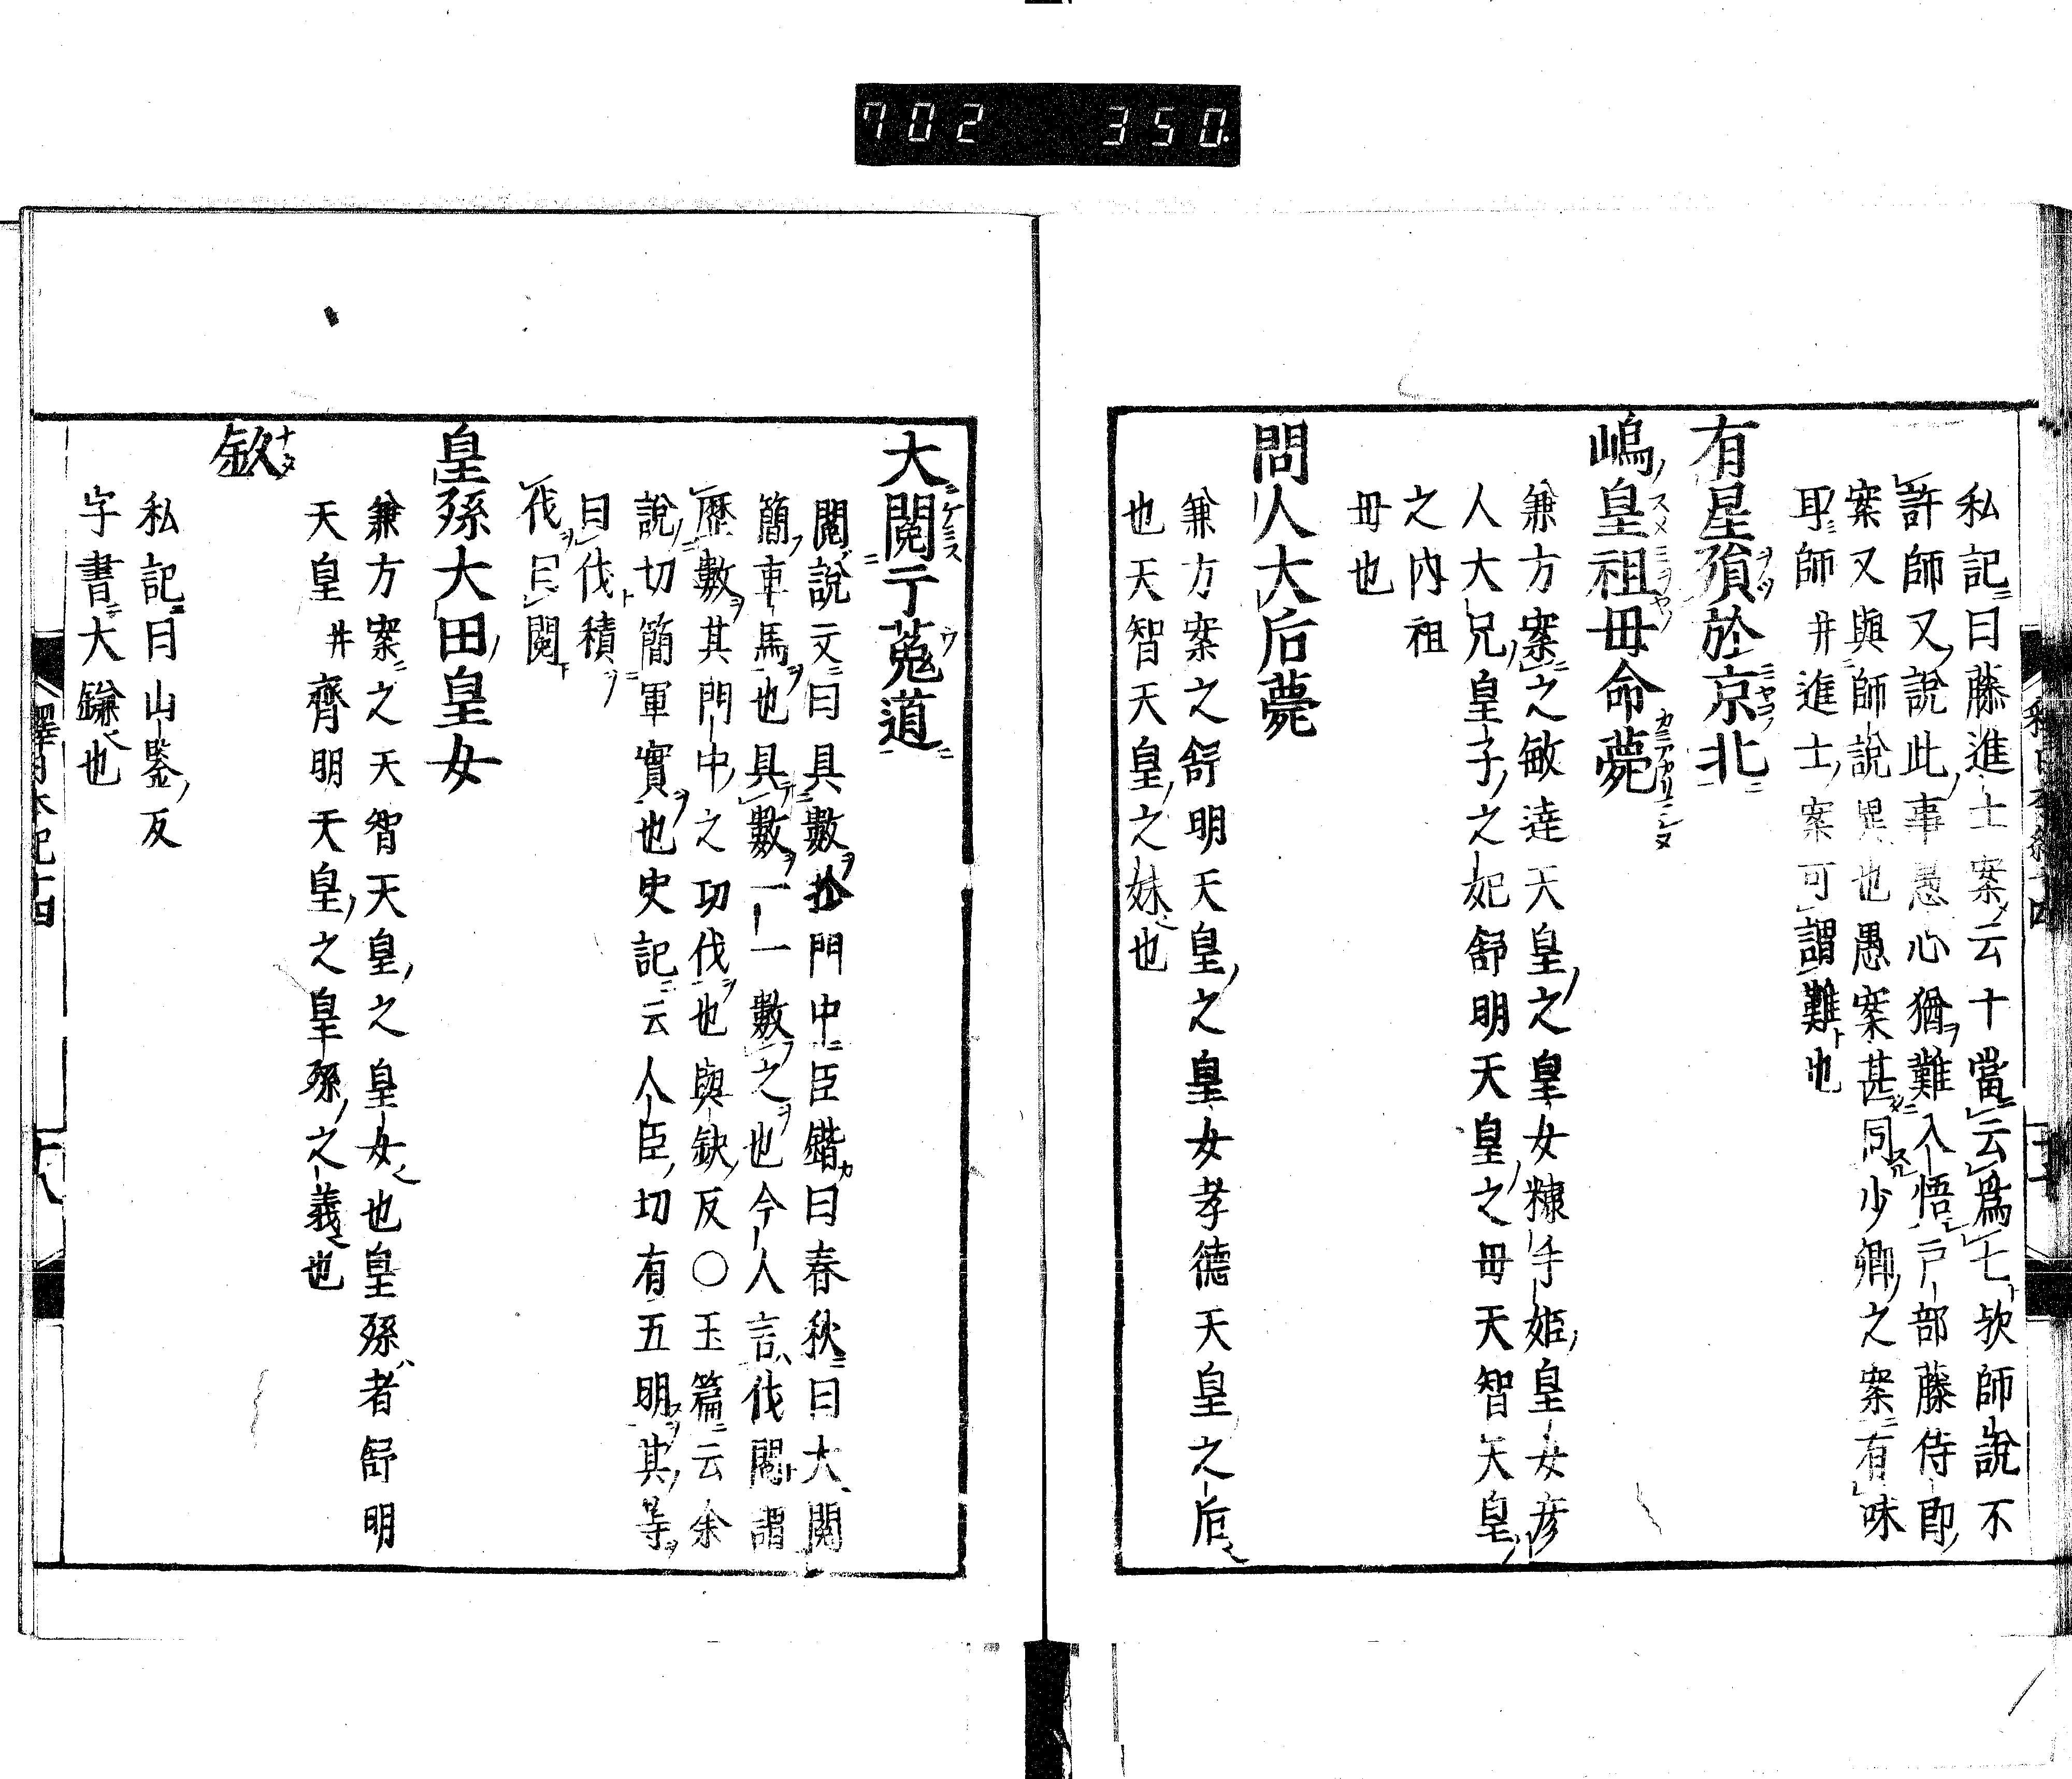 702 350
私記曰藤進士案云十當云爲七欤師說不
許師又說此事愚心猶難入悟戸部藤侍郎
案又與師說異也愚案甚同少卿之案有味
耳師并進士案可謂難也
有星殞於京北
嶋皇祖母命薨
兼方案之敏達天皇之皇女糠手姫皇女彦
人大兄皇子之妃舒明天皇之母天智天皇
之内祖
母也
問人大后薨
兼方案之舒明天皇之皇女孝德天皇之后
也天智天皇之妹也
大閱于菟道
閱說文曰具數於門中臣鍇曰春秋曰大閱
簡車馬也具數一一數之也今人言伐閱謂
歷數其門中之功伐也與缺反〇玉篇云余
說切簡軍實也史記云人臣切有五明其等
曰伐積
伐曰閱
皇孫大田皇女
兼方案之天智天皇之皇女也皇孫者舒明
天皇并齊明天皇之皇孫之義也
釤
私記曰山鑒反
字書大鎌也
釋日本紀十四
十八